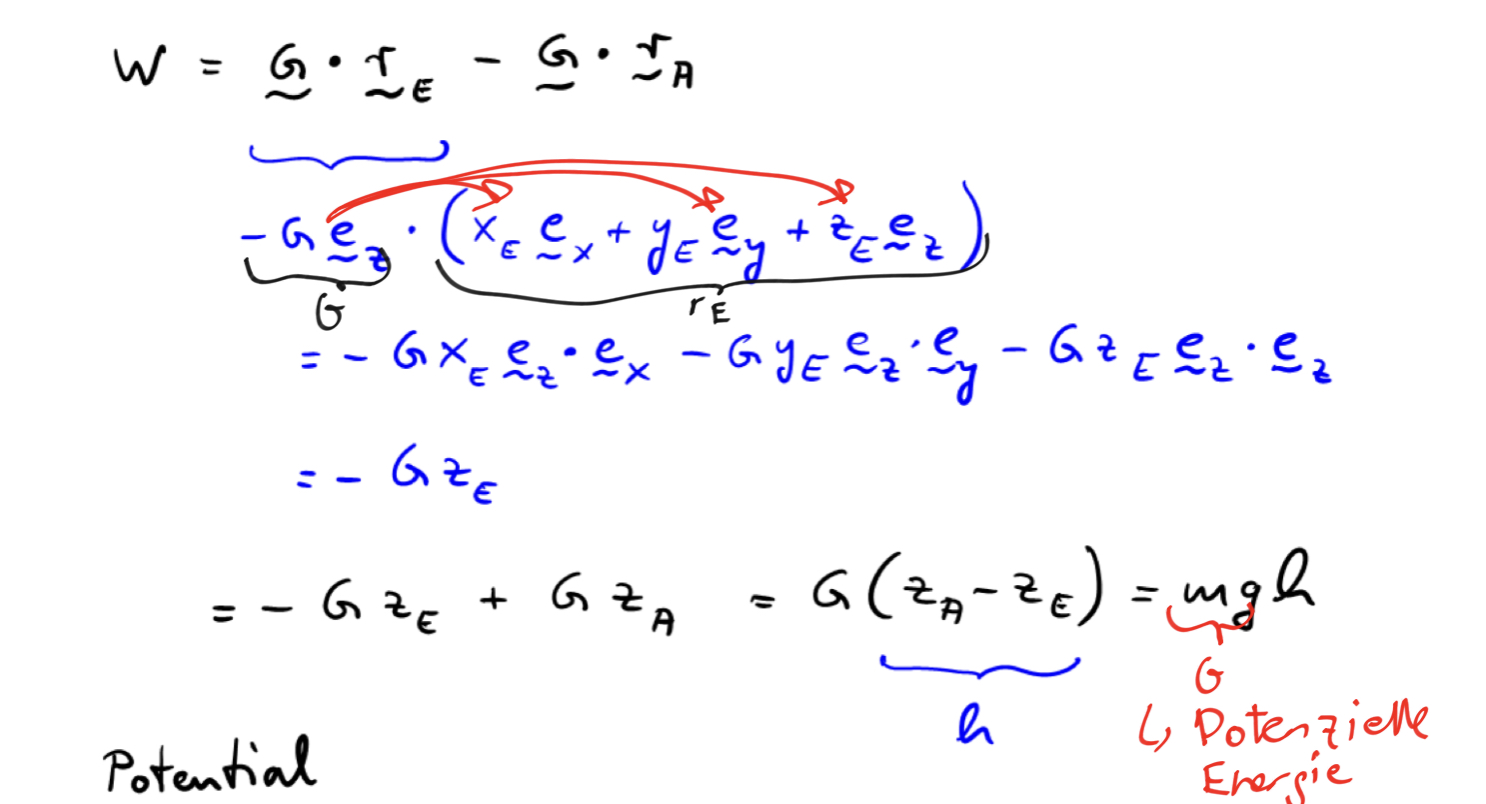 W = G · r_E - G · r_A
- G e_z · (x_E e_x + y_E e_y + z_E e_z)
G r_E
= - G x_E e_z · e_x - G y_E e_z · e_y - G z_E e_z · e_z
= - G z_E
= - G z_E + G z_A = G (z_A - z_E) = mgh
G
h ↳ Potenzielle
Potential Energie